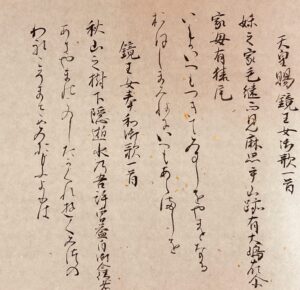 天皇賜鏡王女御歌一首
妹之家毛継而見麻思乎山跡有大嶋嶺尓
家母有猿尾
いもかいへもつきてみましをやまとなる
おほしまみねにいへもあらましを
鏡王女奉和御歌一首
秋山之樹下隠逝水乃吾許曽益目御念従者
あきやまのこのしたかくれゆくみつの
われこそまさめ